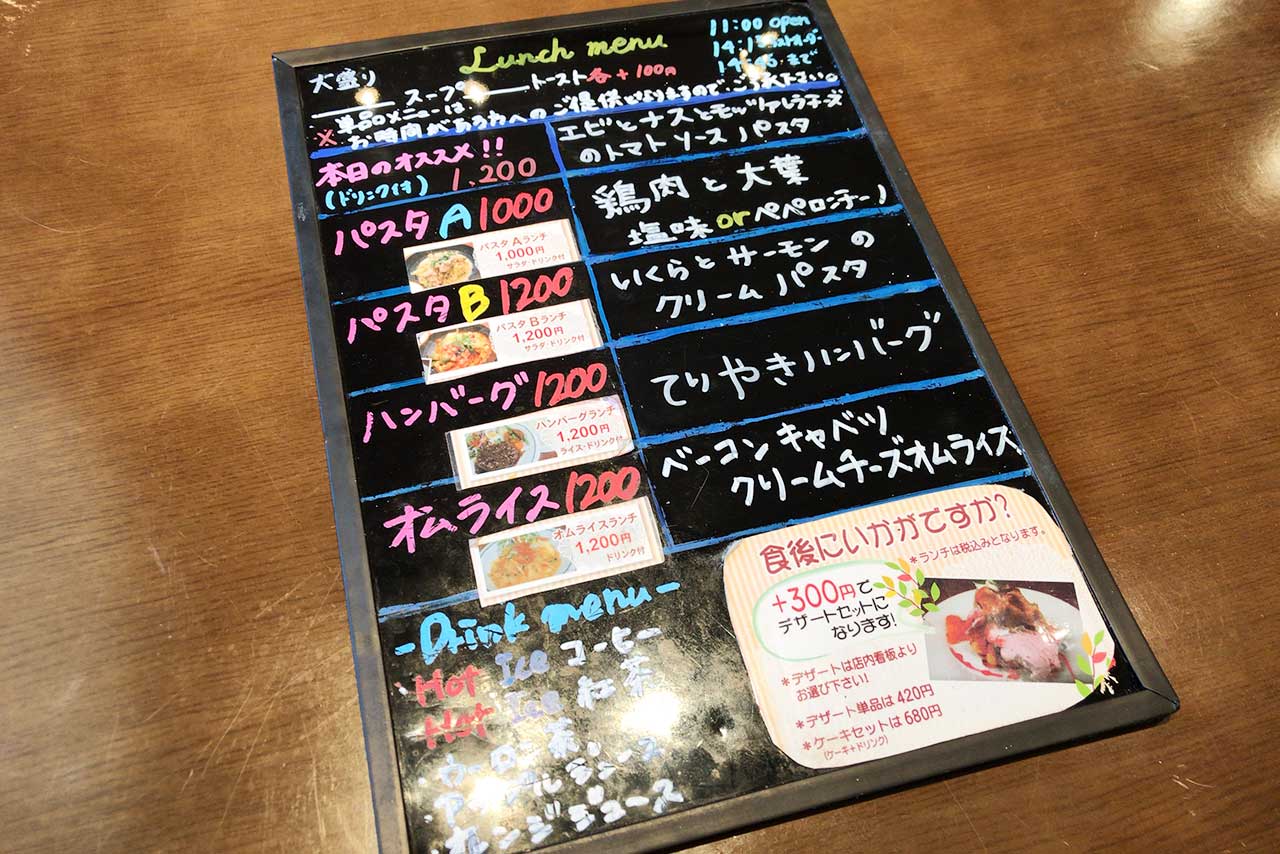 Lunch menu
11:00 open
14:45 まで
大盛り スープ トースト各+100円
※ 単品メニューは
お時間がある方へのご提供となりますのでご了承下さい。
本日のオススメ!!
(ドリンク付) 1,200
エビとナスとモッツァレラチーズ
のトマトソース パスタ
パスタA 1000
パスタAランチ
1,000円
サラダ・ドリンク付
鶏肉と大葉
塩味 or ペペロンチーノ
パスタB 1200
パスタBランチ
1,200円
サラダ・ドリンク付
いくらとサーモンの
クリームパスタ
ハンバーグ 1200
ハンバーグランチ
1,200円
ライス・ドリンク付
てりやきハンバーグ
オムライス 1200
オムライスランチ
1,200円
ドリンク付
ベーコンキャベツ
クリームチーズオムライス
-Drink menu-
・Hot Ice コーヒー
・Hot Ice 紅茶
・ウーロン茶
・アップルジュース
・オレンジジュース
食後にいかがですか?
*ランチは税込みとなります。
+300円で
デザートセットに
なります!
*デザートは店内看板より
お選び下さい!
*デザート単品は420円
*ケーキセットは680円
(ケーキ+ドリンク)